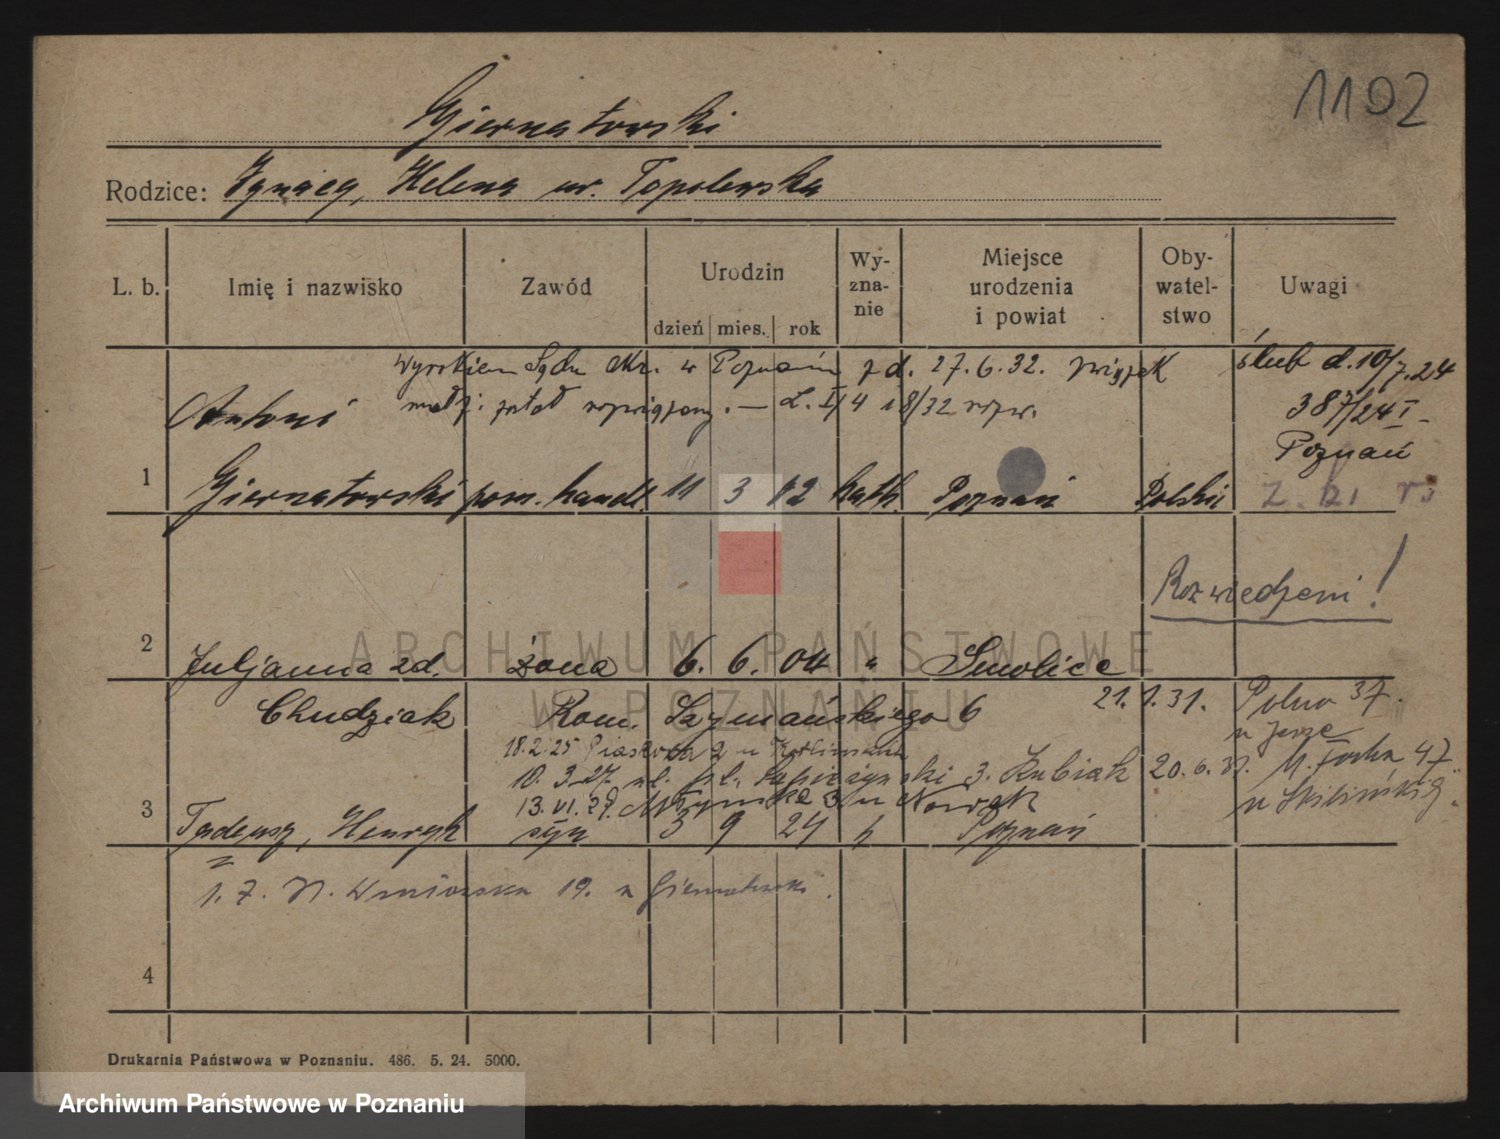 1102
Giernatowski
Rodzice: Ignacy, Helena ur. Topolewska
L. b. Imię i nazwisko Zawód Urodzin dzień mies. rok Wy-zna-nie Miejsce urodzenia i powiat Oby-watel-stwo Uwagi
Wyrokiem Sądu Okr. w Poznaniu z d. 27.6.32. związek
małż. został rozwiązany. — L. I/4 18/32 rozw.
ślub d. 10/7.24
387/24 I
Poznań
1 Antoni
Giernatowski pom. handl. 11 3 02 kath. Poznań Polskie
Rozwiedzeni!
2 Juljanna zd. żona 6. 6. 04 " Smolice
Chudziak Rom. Szymańskiego 6 21.1.31. Polna 37.
18.2.25 2 u
10.3.27 3. Kubiak 20.6.31. M. Focha 47
13.VI.29. 3 u Nowak
3 Tadeusz, Henryk syn 3 9 24 k Poznań
1.7. 19. u Giernatowski.
4
Drukarnia Państwowa w Poznaniu. 486. 5. 24. 5000.
ARCHIWUM PAŃSTWOWE
W POZNANIU
Archiwum Państwowe w Poznaniu